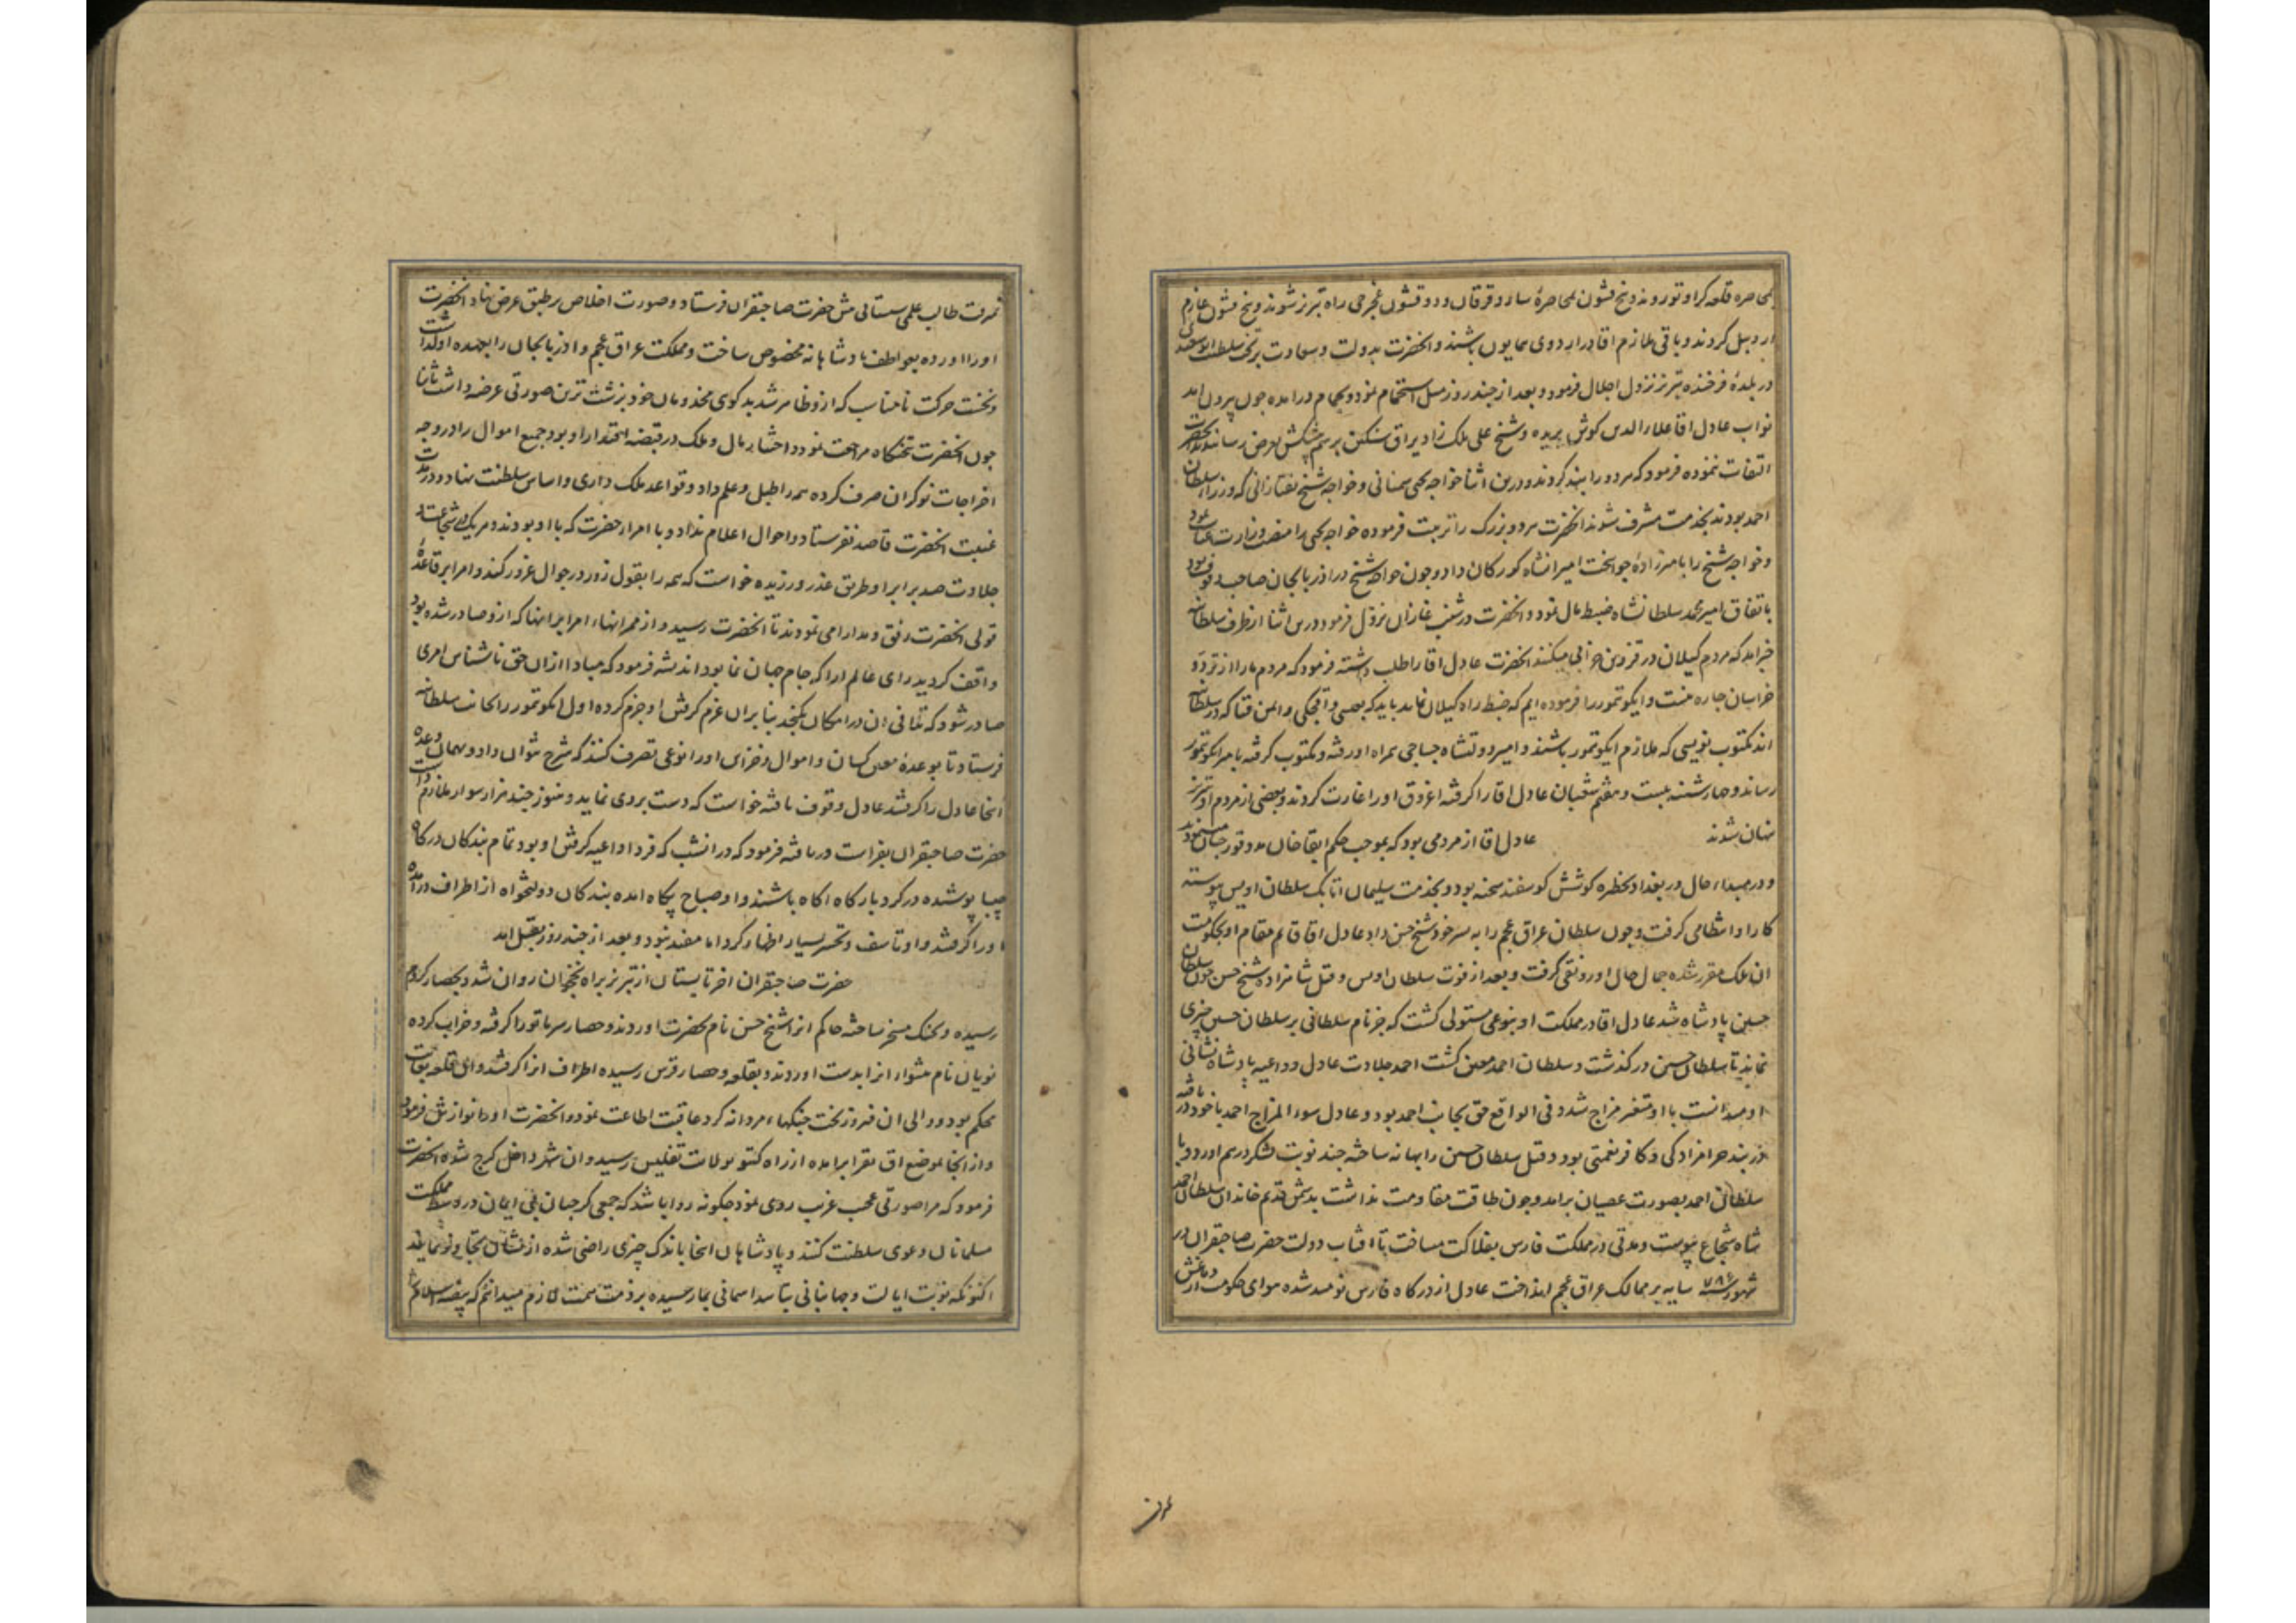 بمحاصره قلعه کراوتو روند و پنج قشون بمحاصرهٔ سارو قرقان و دو قشون نخرجی راه تبریز شوند و پنج قشون عازم
اردبیل کردند و باقی ملازم اقا در اردوی همایون باشند و انحضرت بدولت و سعادت بر تخت سلطنت
در بلدهٔ فرخنده تبریز نزول اجلال فرمود و بعد از چند روز میل استحمام نمود و بحمام درامده چون بیرون امد
نواب عادل اقا علاء الدین کوش بریده و شیخ علی ملک زاد یراق سنگین برسم پیشکش بعرض رسانیدند انحضرت
التفات ننموده فرمود که هر دو را بند کردند و درین اثنا خواجه یحیی سمنانی و خواجه شیخ تفتازانی که وزرای سلطان
احمد بودند بخدمت مشرف شوند انحضرت هر دو بزرک را تربیت فرموده خواجه یحیی را منصب وزارت
و خواجه شیخ را بامیرزادهٔ جوانبخت امیرانشاه کورکان داد و چون خواجه شیخ در اذربایجان صاحب وقوف بود
باتفاق امیر محمد سلطانشاه ضبط مال نمود و انحضرت در شنب غازان نزول فرمود و درین اثنا از طرف سلطانیه
خبر امد که مردم کیلان در قزوین خرابی میکنند انحضرت عادل اقا را طلب داشته فرمود که مردم ما را از تردد
خراسان چاره نیست و ایکو تمور را فرموده ایم که ضبط راه کیلان نماید باید که بعیسی و اقجکی و امین قتا که در سلطانیه
اند مکتوب نویسی که ملازم ایکو تمور باشند و امیر دولتشاه جباجی همراه او رفته و مکتوب کرفته بامیر ایکو تمور
رساند و چهارشنبه بیست و هفتم شعبان عادل اقا را کرفته اغروق او را غارت کردند و بعضی از مردم او در تبریز
پنهان شدند عادل اقا از مردمی بود که بموجب حکم ابقا خان
و در مبداء حال در بغداد بخطره کوشش کوسفند شحنه بود و بخدمت سلیمان اتابک سلطان اویس پیوسته
کار او انتظامی کرفت و چون سلطان عراق عجم را به پسر خود شیخ حسن داد عادل اقا قایم مقام او بحکومت
ان ملک مقرر شده جمال حال او رونقی کرفت و بعد از فوت سلطان اویس و قتل شاهزاده شیخ حسن چون سلطان
حسین پادشاه شد عادل اقا در مملکت او بنوعی مستولی کشت که جز نام سلطانی بر سلطان حسین چیزی
نماند تا سلطان حسین در کذشت و سلطان احمد معین کشت احمد جلادت عادل و داعیه پادشاه نشانی
او میدانست با او متغیر مزاج شد و فی الواقع حق بجانب احمد بود و عادل سوء المزاج احمد با خود دریافته
در بند حرامزادکی و کافر نعمتی بود و قتل سلطان حسین را بهانه ساخته چند نوبت لشکر درهم اورد و با
سلطان احمد بصورت عصیان برامد و چون طاقت مقاومت نداشت بدشمن قدیم خاندان سلطان احمد
شاه شجاع پیوست و مدتی در مملکت فارس بفلاکت مسافت تا افتاب دولت حضرت صاحبقران در
شهور سنه ۷۸۶ سایه بر ممالک عراق عجم انداخت عادل از درکاه فارس نومید شده هوای حکومت در دماغش
ثمرفت طالب علمی سیستانی پیش حضرت صاحبقران فرستاد و صورت اخلاص بر طبق عرض نهاد انحضرت
او را اورده بعواطف پادشاهانه مخصوص ساخت و مملکت عراق عجم و اذربایجان را بعهده او کذاشت
و نخست حرکت نامناسب که ازو ظاهر شد بدکوی مخدومان خود بزشت ترین صورتی عرضه داشت ثانیا
چون انحضرت بتختکاه مراجعت نمود و احشا بمال و ملک در قبضه اقتدار او بود جمیع اموال را در وجه
اخراجات نوکران صرف کرده همه را طبل و علم داد و قواعد ملک داری و اساس سلطنت نهاد و در مدت
غیبت انحضرت قاصد نفرستاد و احوال اعلام نداد و با امراء حضرت که با او بودند و هر یک در شجاعت و
جلادت صد برابر او طریق غدر ورزیده خواست که همه را بقول زور در جوال غرور کند و امرا بر قاعدهٔ
قولی انحضرت رفق و مدارا می نمودند تا انحضرت رسید و از ممر انهاء امرا بر انها که ازو صادر شده بود
واقف کردید رای عالم ارا که جام جهان نما بود اندیشه فرمود که مبادا از ان حق ناشناس امری
صادر شود که تلافی ان در امکان نکنجد بنا بر ان عزم کرفتن او جزم کرده اول ایکو تمور را بجانب سلطانیه
فرستاد تا بوعدهٔ معین کسان و اموال و خزاین او را نوعی تصرف کنند که شرح نتوان داد و بهمان وعده
اینجا عادل را کرفتند عادل وقوف یافته خواست که دست بردی نماید و هنوز چند هزار سوار ملازم داشت
حضرت صاحبقران بفراست دریافته فرمود که در انشب که فردا داعیه کرفتن او بود تمام بندکان درکاه
جیبا پوشیده در کرد بارکاه اکاه باشند و او صباح پکاه امده بندکان دولتخواه از اطراف درامده
او را کرفتند و او تاسف و تحسر بسیار اظهار کرد اما مفید نبود و بعد از چند روز بقتل امد
حضرت صاحبقران اخر تابستان از تبریز براه نخجوان روان شد و بحصار کرنی
رسیده و بجنک مسخر ساخته حاکم انرا شیخ حسن نام بحضرت اوردند و حصار سرماتو را کرفته و خراب کرده
تومان نام پیشوای انرا بدست اوردند و بقلعه و حصار قرس رسیده اطراف انرا کرفتند و ان قلعه بغایت
محکم بود و والی ان فیروزبخت جنکهاء مردانه کرد عاقبت اطاعت نمود و انحضرت او را نوازش فرمود
و از انجا بموضع اق بقرا برامده از راه کتو بولایت تفلیس رسید و ان شهر داخل کرج شده انحضرت
فرمود که مرا صورتی عجب غریب روی نمود چکونه روا باشد که جمعی کرجیان بی ایمان در وسط مملکت
مسلمانان دعوی سلطنت کنند و پادشاهان انجا باندک چیزی راضی شده از نشان تجاوز نمایند
اکنون که نوبت ایالت و جهانبانی بتایید اسمانی بما رسیده بر ذمت همت لازم میدانم که بیضه اسلام